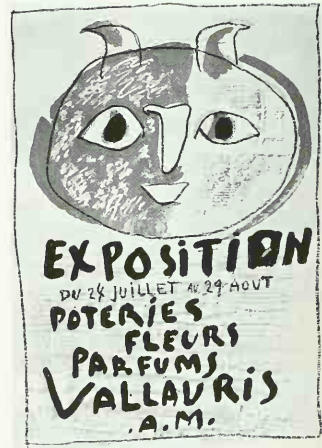 EXPOSITION
DU 24 JUILLET AU 29 AOUT
POTERIES
FLEURS
PARFUMS
VALLAURIS
.A.M.